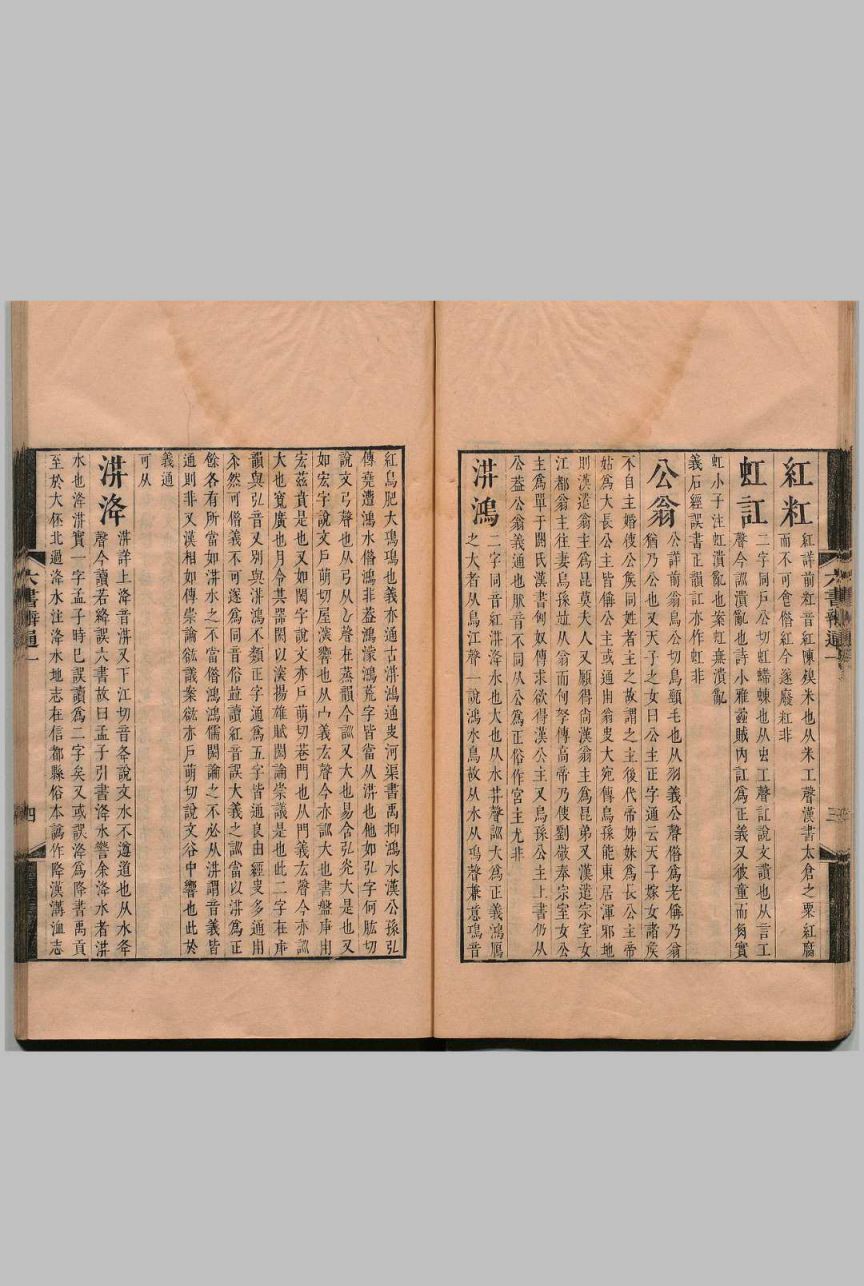 紅粠
紅詳前粠音紅陳䊪米也从米工聲漢書太倉之粟紅腐
而不可食俗紅今遂廢粠非
虹訌
二字同戶公切虹螮蝀也从虫工聲訌說文讀也从言工
聲今訓潰亂也詩小雅蟊賊內訌爲正義又彼童而角實
虹小子注虹潰亂也案虹無潰亂
義石經誤書正韻訌亦作虹非
公翁
公詳前翁烏公切鳥頸毛也从羽義公聲俗爲老偁乃翁
猶乃公也又天子之女曰公主正字通云天子嫁女諸矦
不自主婚使公矦同姓者主之故謂之主後代帝姊妹爲長公主帝
姑爲大長公主皆偁公主或通用翁叓大宛傳烏孫能東居渾邪地
則漢遣翁主爲昆莫夫人又願得尚漢翁主爲昆弟又漢遣宗室女
江都翁主往妻烏孫竝从翁而何孥傳高帝乃使劉敬奉宗室女公
主爲單于閼氏漢書匈奴傳求欲得漢公主又烏孫公主上書仍从
公葢公翁義通也䏌音不同从公爲正俗作宮主尤非
洪鴻
二字同音紅洪洚水也大也从水共聲訓大爲正義鴻鴈
之大者从鳥江聲一說鴻水鳥故从水从鳿聲兼意鳿音
紅鳥肥大鳿鳿也義亦通古洪鴻通叓河渠書禹抑鴻水漢公孫弘
傳堯遭鴻水俗鴻非葢鴻濛鴻荒字皆當从洪也他如弘字何肱切
說文弓聲也从弓从厶聲在蒸韻今訓又大也易含弘光大是也又
如宏字說文戶萌切屋深響也从宀義厷聲今亦訓大也書盤庚用
宏茲賁是也又如閎字說文亦戶萌切巷門也从門義厷聲今亦訓
大也寬廣也月令其器閎以淡揚雄賦閎論崇議是也此二字在庚
韻與弘音又別與洪鴻不類正字通爲五字皆通良由經叓多通用
尒然可俗義不可遂爲同音俗竝讀紅音誤大義之訓當以洪爲正
餘各有所當如洪水之不當俗鴻鴻儒閎論之不必从洪謂音義皆
通則非又漢相如傳崇論谹議案谹亦戶萌切說文谷中響也此於
義通
可从
洪洚
洪詳上洚音洪又下江切音夅說文水不遵道也从水夅
聲今讀若絳誤六書故曰孟子引書洚水警余洚水者洪
水也洚洪實一字孟子時已誤讀爲二字矣又或誤洚爲降書禹貢
至於大伾北過洚水注洚水地志在信都縣俗本譌作降漢溝洫志
六書辨通一
三
六書辨通一
四